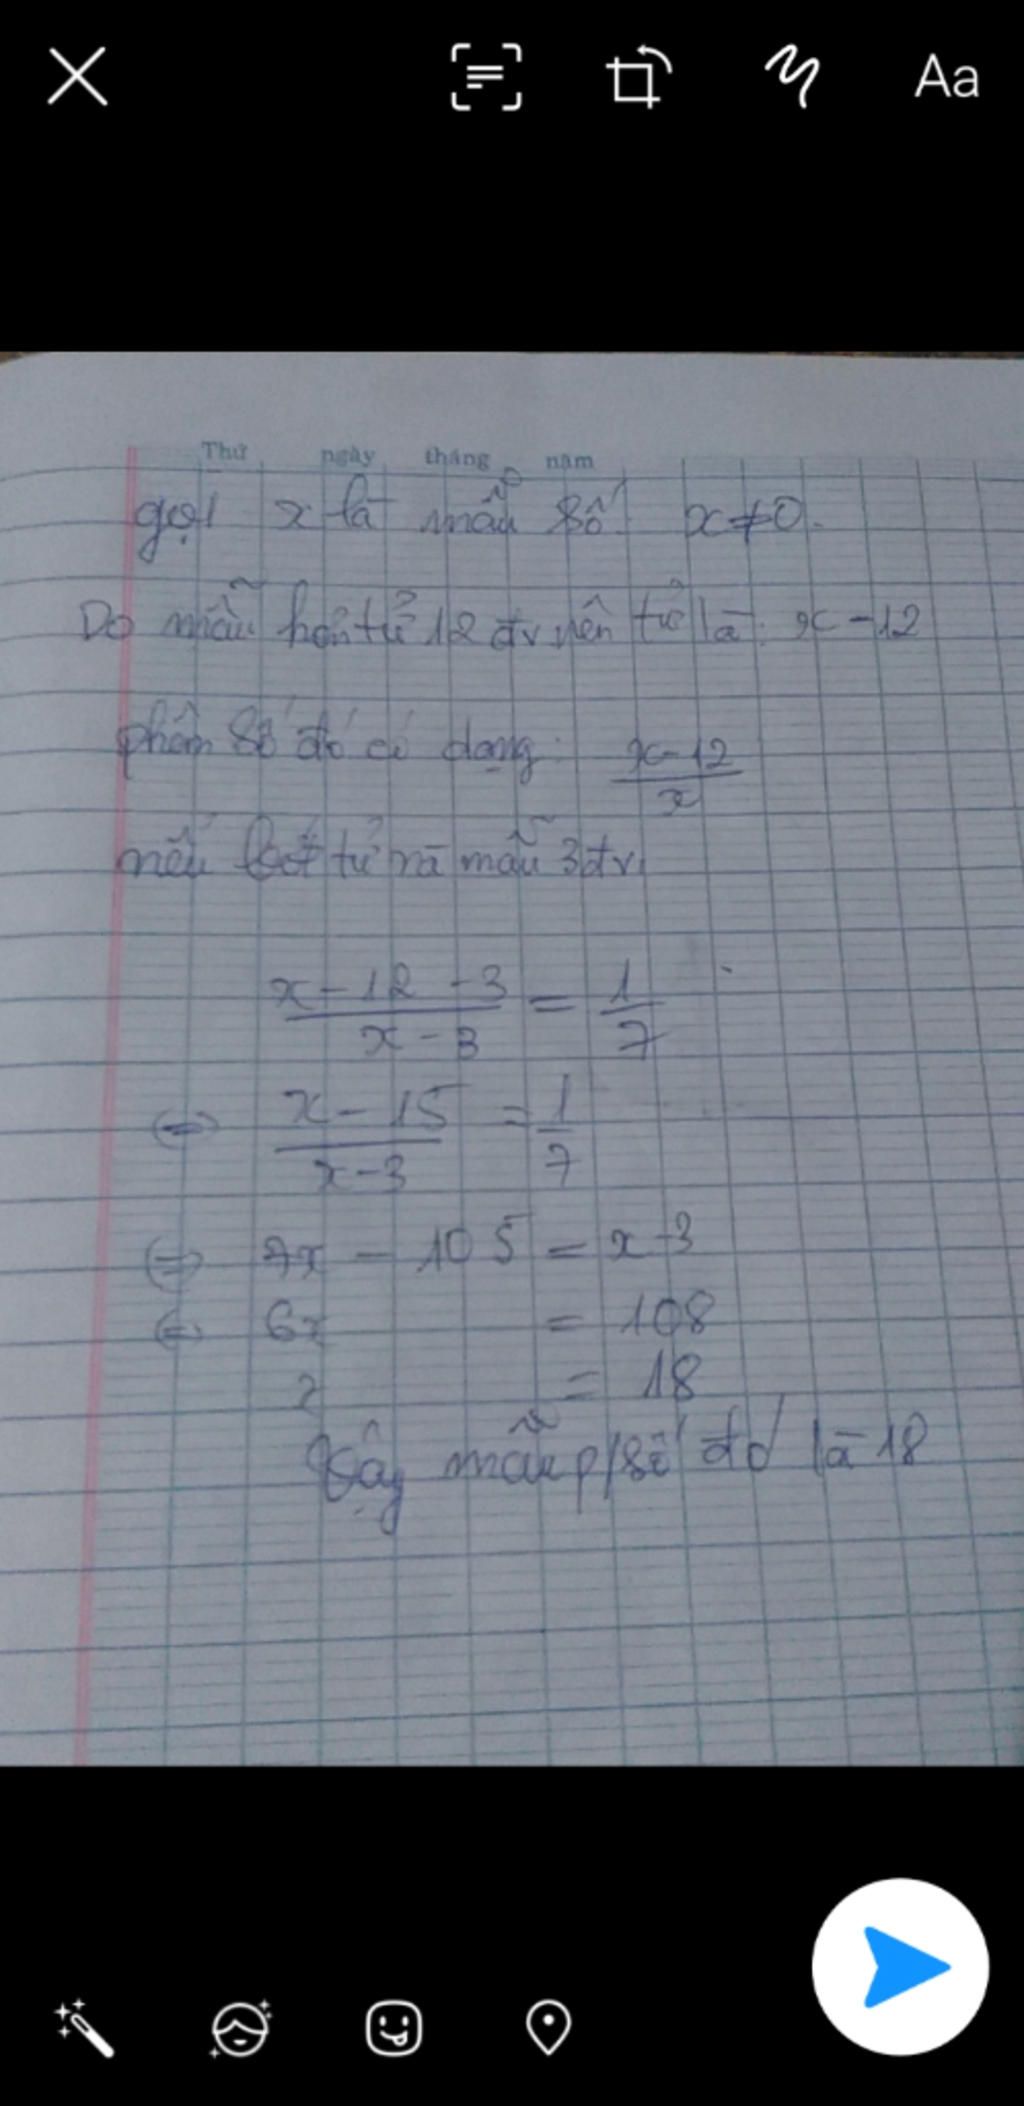 Aa
Thứ ngày tháng năm
gọi x là mẫu số x≠0.
Do mẫu hơn tử 12 đv nên tử là: x-12
phân số đó có dạng: x-12/x
nếu bớt tử và mẫu 3đv
x-12-3/x-3 = 1/7
⇔ x-15/x-3 = 1/7
⇔ 7x - 105 = x-3
⇔ 6x = 108
= 18
Vậy mẫu p/số đó là 18